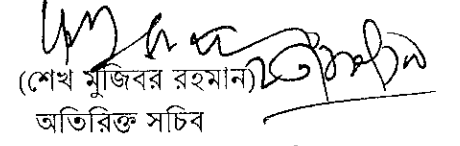 (শেখ মুজিবর রহমান)
অতিরিক্ত সচিব